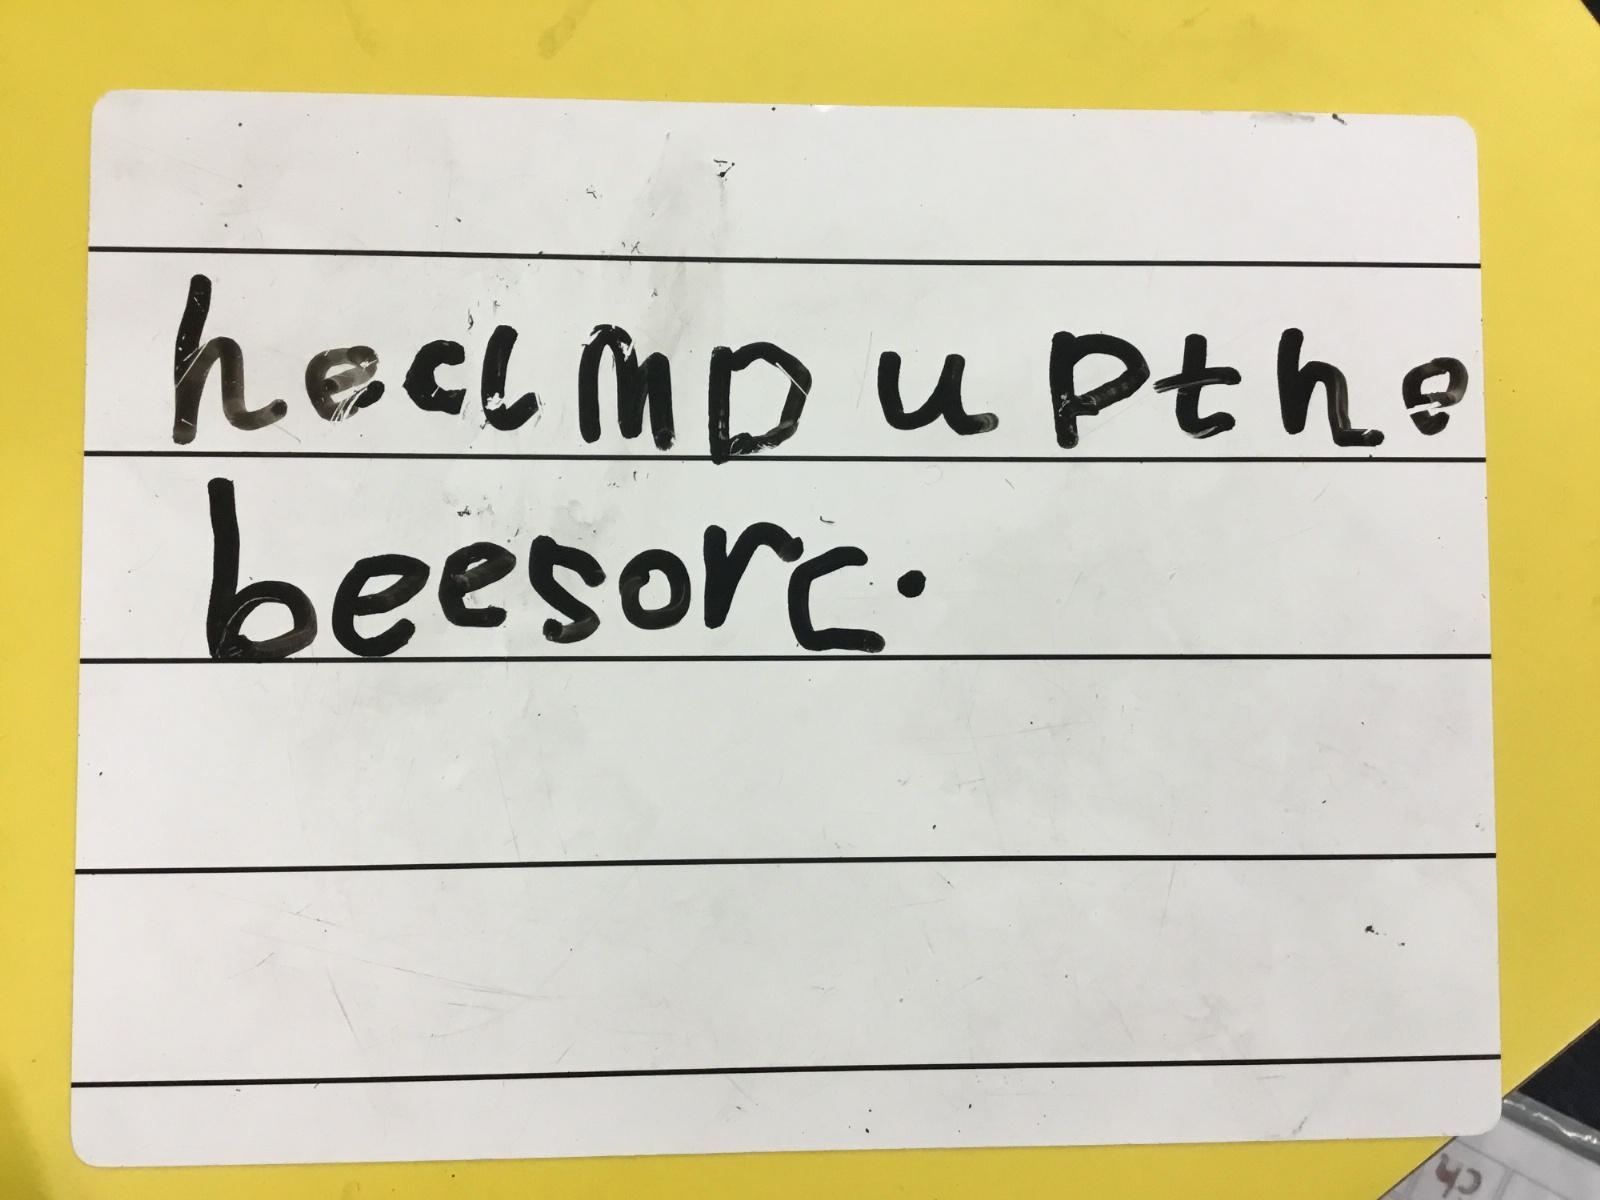 he clmp up the
beesorc.